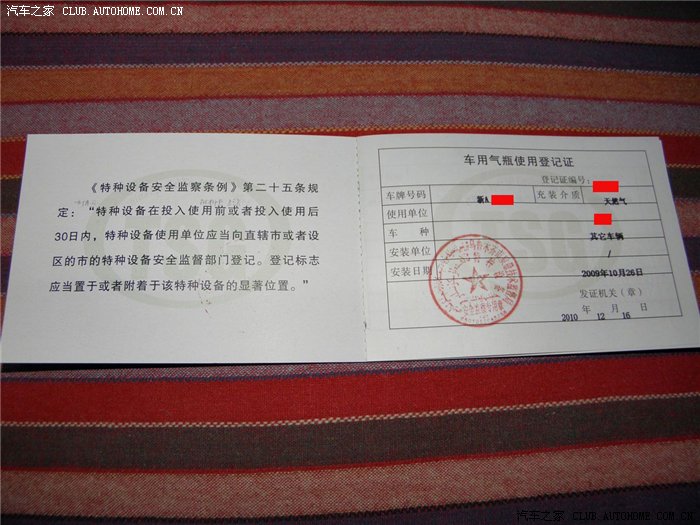 汽车之家 CLUB.AUTOHOME.COM.CN
《特种设备安全监察条例》第二十五条规
定：“特种设备在投入使用前或者投入使用后
30日内，特种设备使用单位应当向直辖市或者设
区的市的特种设备安全监督部门登记。登记标志
应当置于或者附着于该特种设备的显著位置。”
车用气瓶使用登记证
登记证编号：
车牌号码 新A 充装介质 天然气
使用单位
车 种 其它车辆
安装单位 /
安装日期 2009年10月26日
发证机关（章）
2010 年 12 月 16 日
汽车之家 CLUB.AUTOHOME.COM.CN